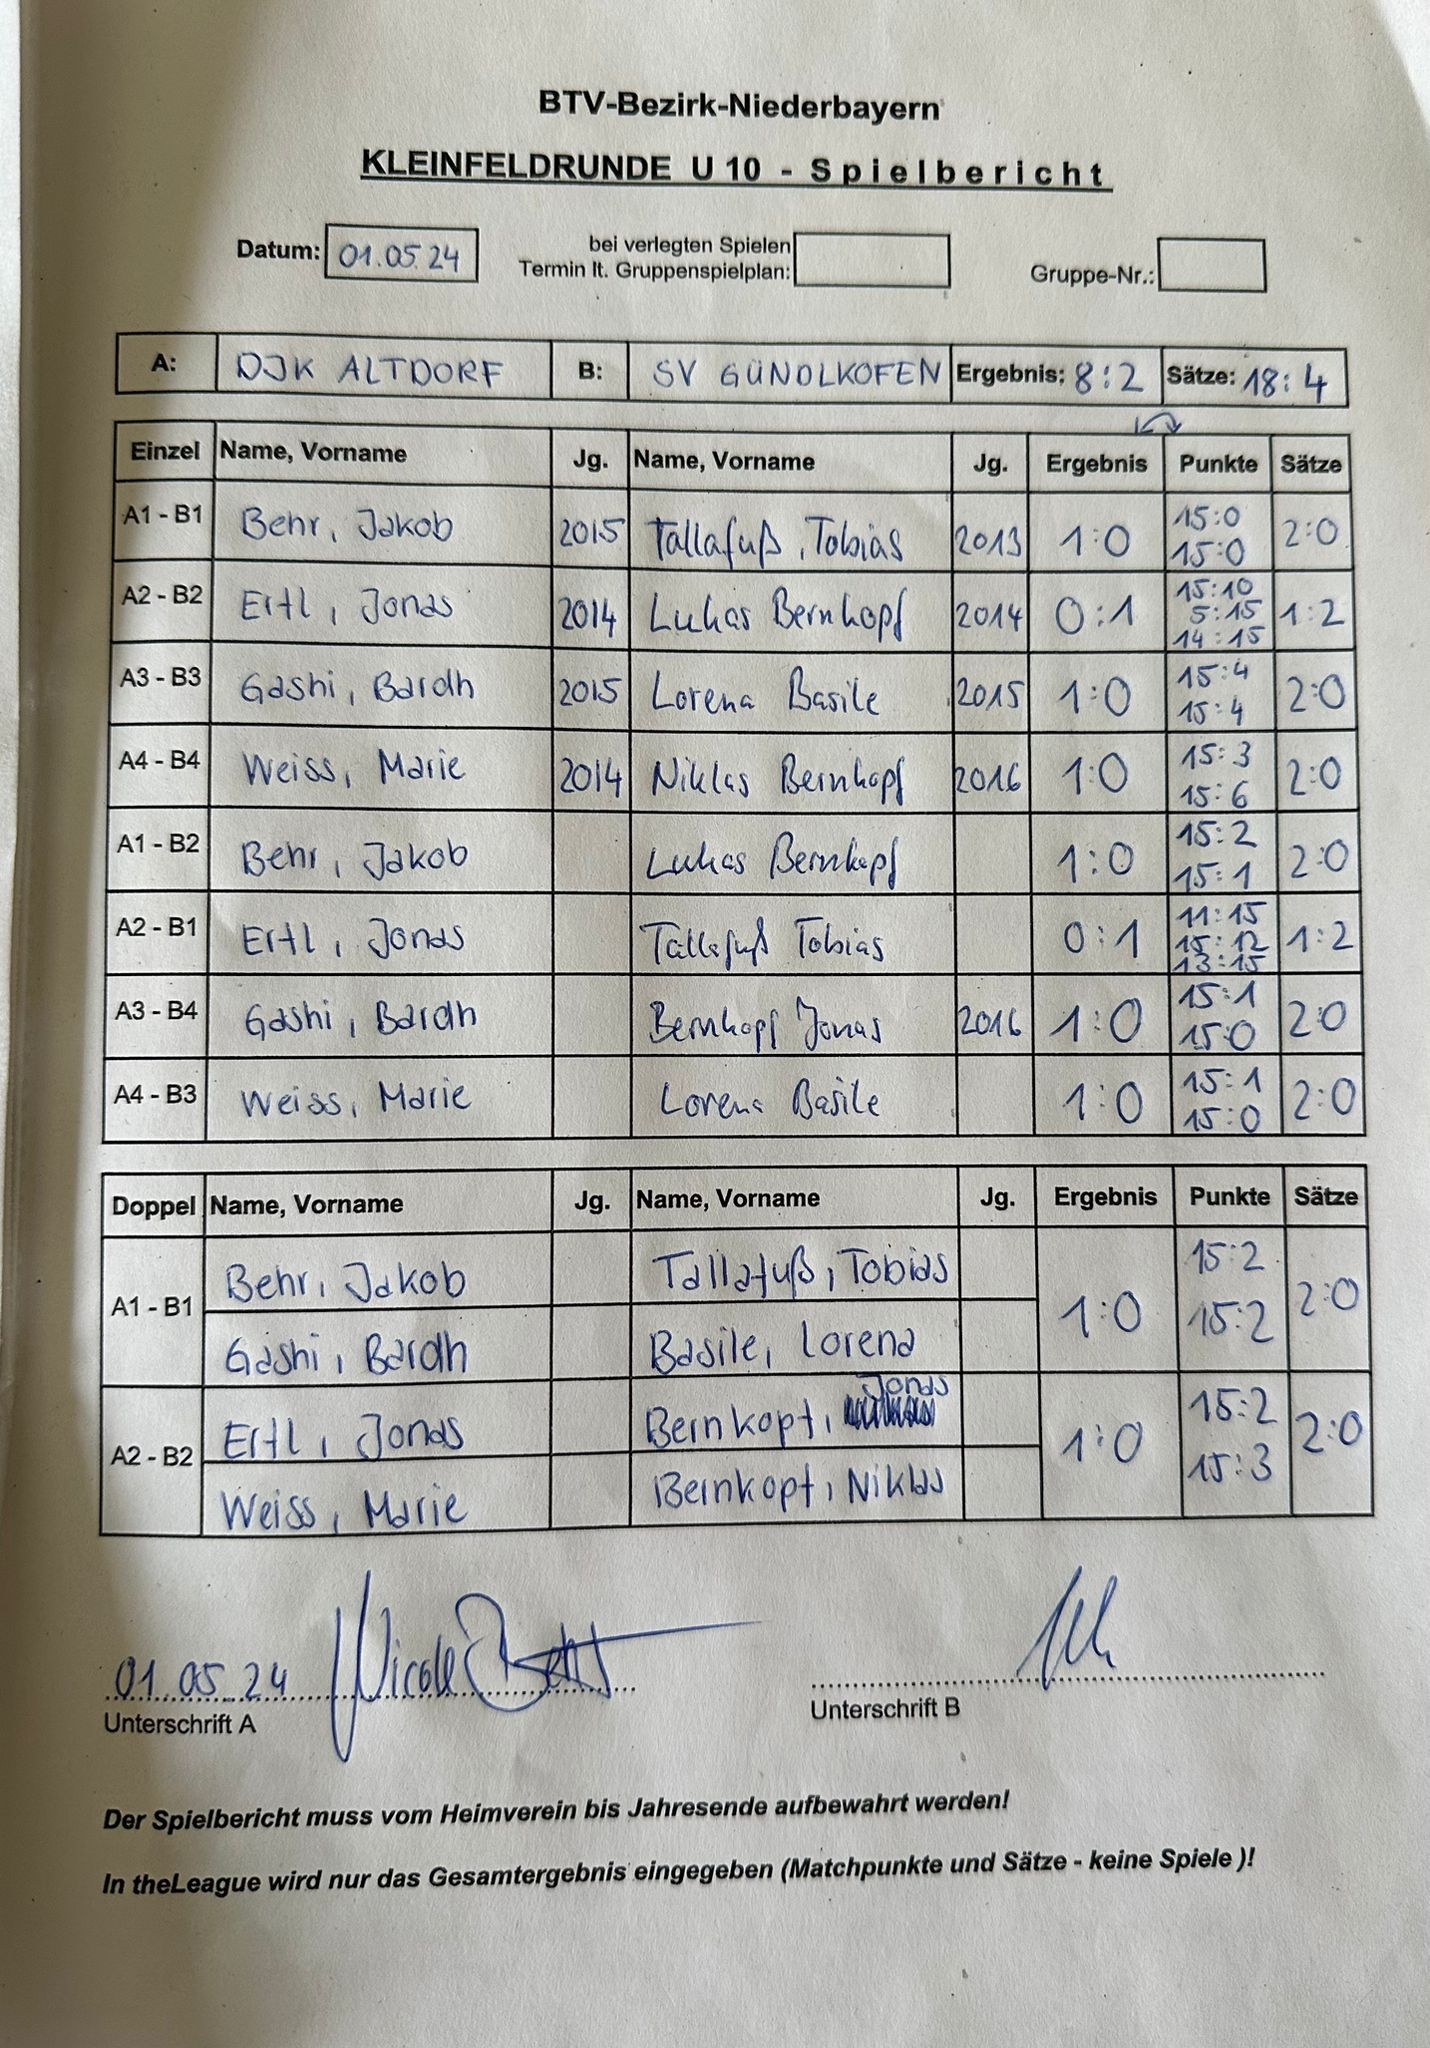 BTV-Bezirk-Niederbayern
KLEINFELDRUNDE U 10 - Spielbericht
Datum: 01.05.24 bei verlegten Spielen Termin lt. Gruppenspielplan: Gruppe-Nr.:
A: DJK ALTDORF B: SV GÜNDLKOFEN Ergebnis: 8:2 Sätze: 18:4
Einzel Name, Vorname Jg. Name, Vorname Jg. Ergebnis Punkte Sätze
A1 - B1 Behr, Jakob 2015 Tallafuß, Tobias 2013 1:0 15:0 15:0 2:0
A2 - B2 Ertl, Jonas 2014 Lukas Bernkopf 2014 0:1 15:10 5:15 14:15 1:2
A3 - B3 Gashi, Bardh 2015 Lorena Basile 2015 1:0 15:4 15:4 2:0
A4 - B4 Weiss, Marie 2014 Niklas Bernkopf 2016 1:0 15:3 15:6 2:0
A1 - B2 Behr, Jakob Lukas Bernkopf 1:0 15:2 15:1 2:0
A2 - B1 Ertl, Jonas Tallafuß Tobias 0:1 11:15 15:12 13:15 1:2
A3 - B4 Gashi, Bardh Bernkopf Jonas 2016 1:0 15:1 15:0 2:0
A4 - B3 Weiss, Marie Lorena Basile 1:0 15:1 15:0 2:0
Doppel Name, Vorname Jg. Name, Vorname Jg. Ergebnis Punkte Sätze
A1 - B1 Behr, Jakob Tallafuß, Tobias 1:0 15:2 15:2 2:0
Gashi, Bardh Basile, Lorena
A2 - B2 Ertl, Jonas Bernkopf, Jonas 1:0 15:2 15:3 2:0
Weiss, Marie Bernkopf, Niklas
01.05.24 Nicole
Unterschrift A Unterschrift B
Der Spielbericht muss vom Heimverein bis Jahresende aufbewahrt werden!
In theLeague wird nur das Gesamtergebnis eingegeben (Matchpunkte und Sätze - keine Spiele )!